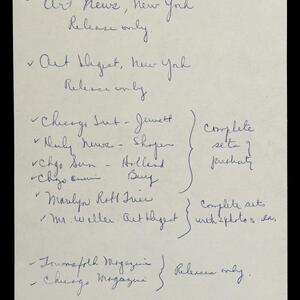 ✓ Art News, New York
Release only.
✓ Art Digest, New York
Release only
✓ Chicago Sun - Jewett
✓ Daily News -
✓ Chgo Sun - Holland
✓ Chgo
complete
sets of
✓ Marilyn Robb Trier
✓ Mr. Weller Art Digest
Complete sets
with photos
✓ Townsfolk Magazine
✓ Chicago Magazine
Releases only.